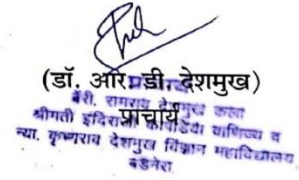 (डॉ. आर. डी. देशमुख)
प्राचार्य
बॅरी. रामराव देशमुख कला
श्रीमती इंदिराजी कापडिया वाणिज्य व
न्या. कृष्णराव देशमुख विज्ञान महाविद्यालय
बडनेरा.